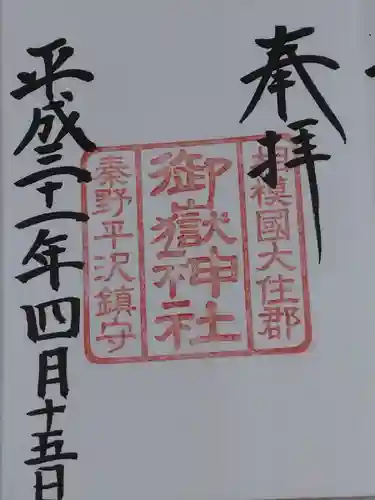 奉拝
相模國大住郡
御嶽神社
秦野平沢鎮守
平成三十一年四月十五日